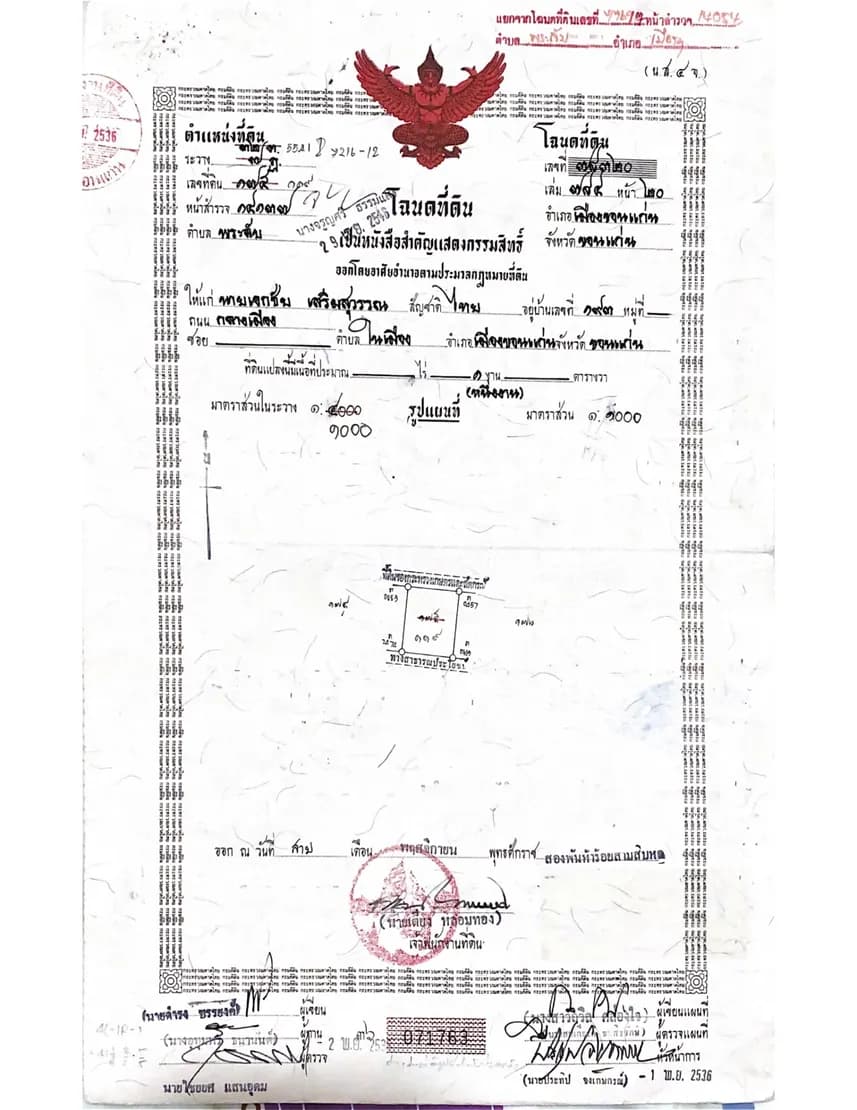 แยกจากโฉนดที่ดินเลขที่ หน้าสำรวจ 14054
ตำบล พระลับ อำเภอ เมืองฯ
(น.ส.๔ จ.)
ตำแหน่งที่ดิน
ระวาง 5541 I 7216-12
เลขที่ดิน ๑๗๕ ๑๑๙
หน้าสำรวจ ๑๔๑๓๗
ตำบล พระลับ
โฉนดที่ดิน
เลขที่
เล่ม ๓๘๔ หน้า ๒๐
อำเภอ เมืองขอนแก่น
จังหวัด ขอนแก่น
โฉนดที่ดิน
เป็นหนังสือสำคัญแสดงกรรมสิทธิ์
ออกโดยอาศัยอำนาจตามประมวลกฎหมายที่ดิน
ให้แก่ นายเอกชัย เสริมสุวรรณ สัญชาติ ไทย อยู่บ้านเลขที่ ๑๙๓ หมู่ที่
ถนน กลางเมือง
ซอย ตำบล ในเมือง อำเภอ เมืองขอนแก่น จังหวัด ขอนแก่น
ที่ดินแปลงนี้มีเนื้อที่ประมาณ ไร่ ๑ งาน ตารางวา
(หนึ่งงาน)
มาตราส่วนในระวาง ๑:๔๐๐๐ รูปแผนที่ มาตราส่วน ๑:๑๐๐๐
๑๐๐๐
ที่ดินของกระทรวงเกษตรและสหกรณ์
๑๗๕
๑๑๙
ทางสาธารณประโยชน์
ออก ณ วันที่ สาม เดือน พฤศจิกายน พุทธศักราช สองพันห้าร้อยสามสิบหก
(นายเตียง หลอมทอง)
เจ้าพนักงานที่ดิน
ผู้เขียน
ผู้ทาน
ผู้ตรวจ
- 2 พ.ย. 253
071763
ผู้เขียนแผนที่
ผู้ตรวจแผนที่
หัวหน้าการ
(นายประทีป จงเกษกรณ์) - 1 พ.ย. 2536
นายไชยยศ แสนอุดม